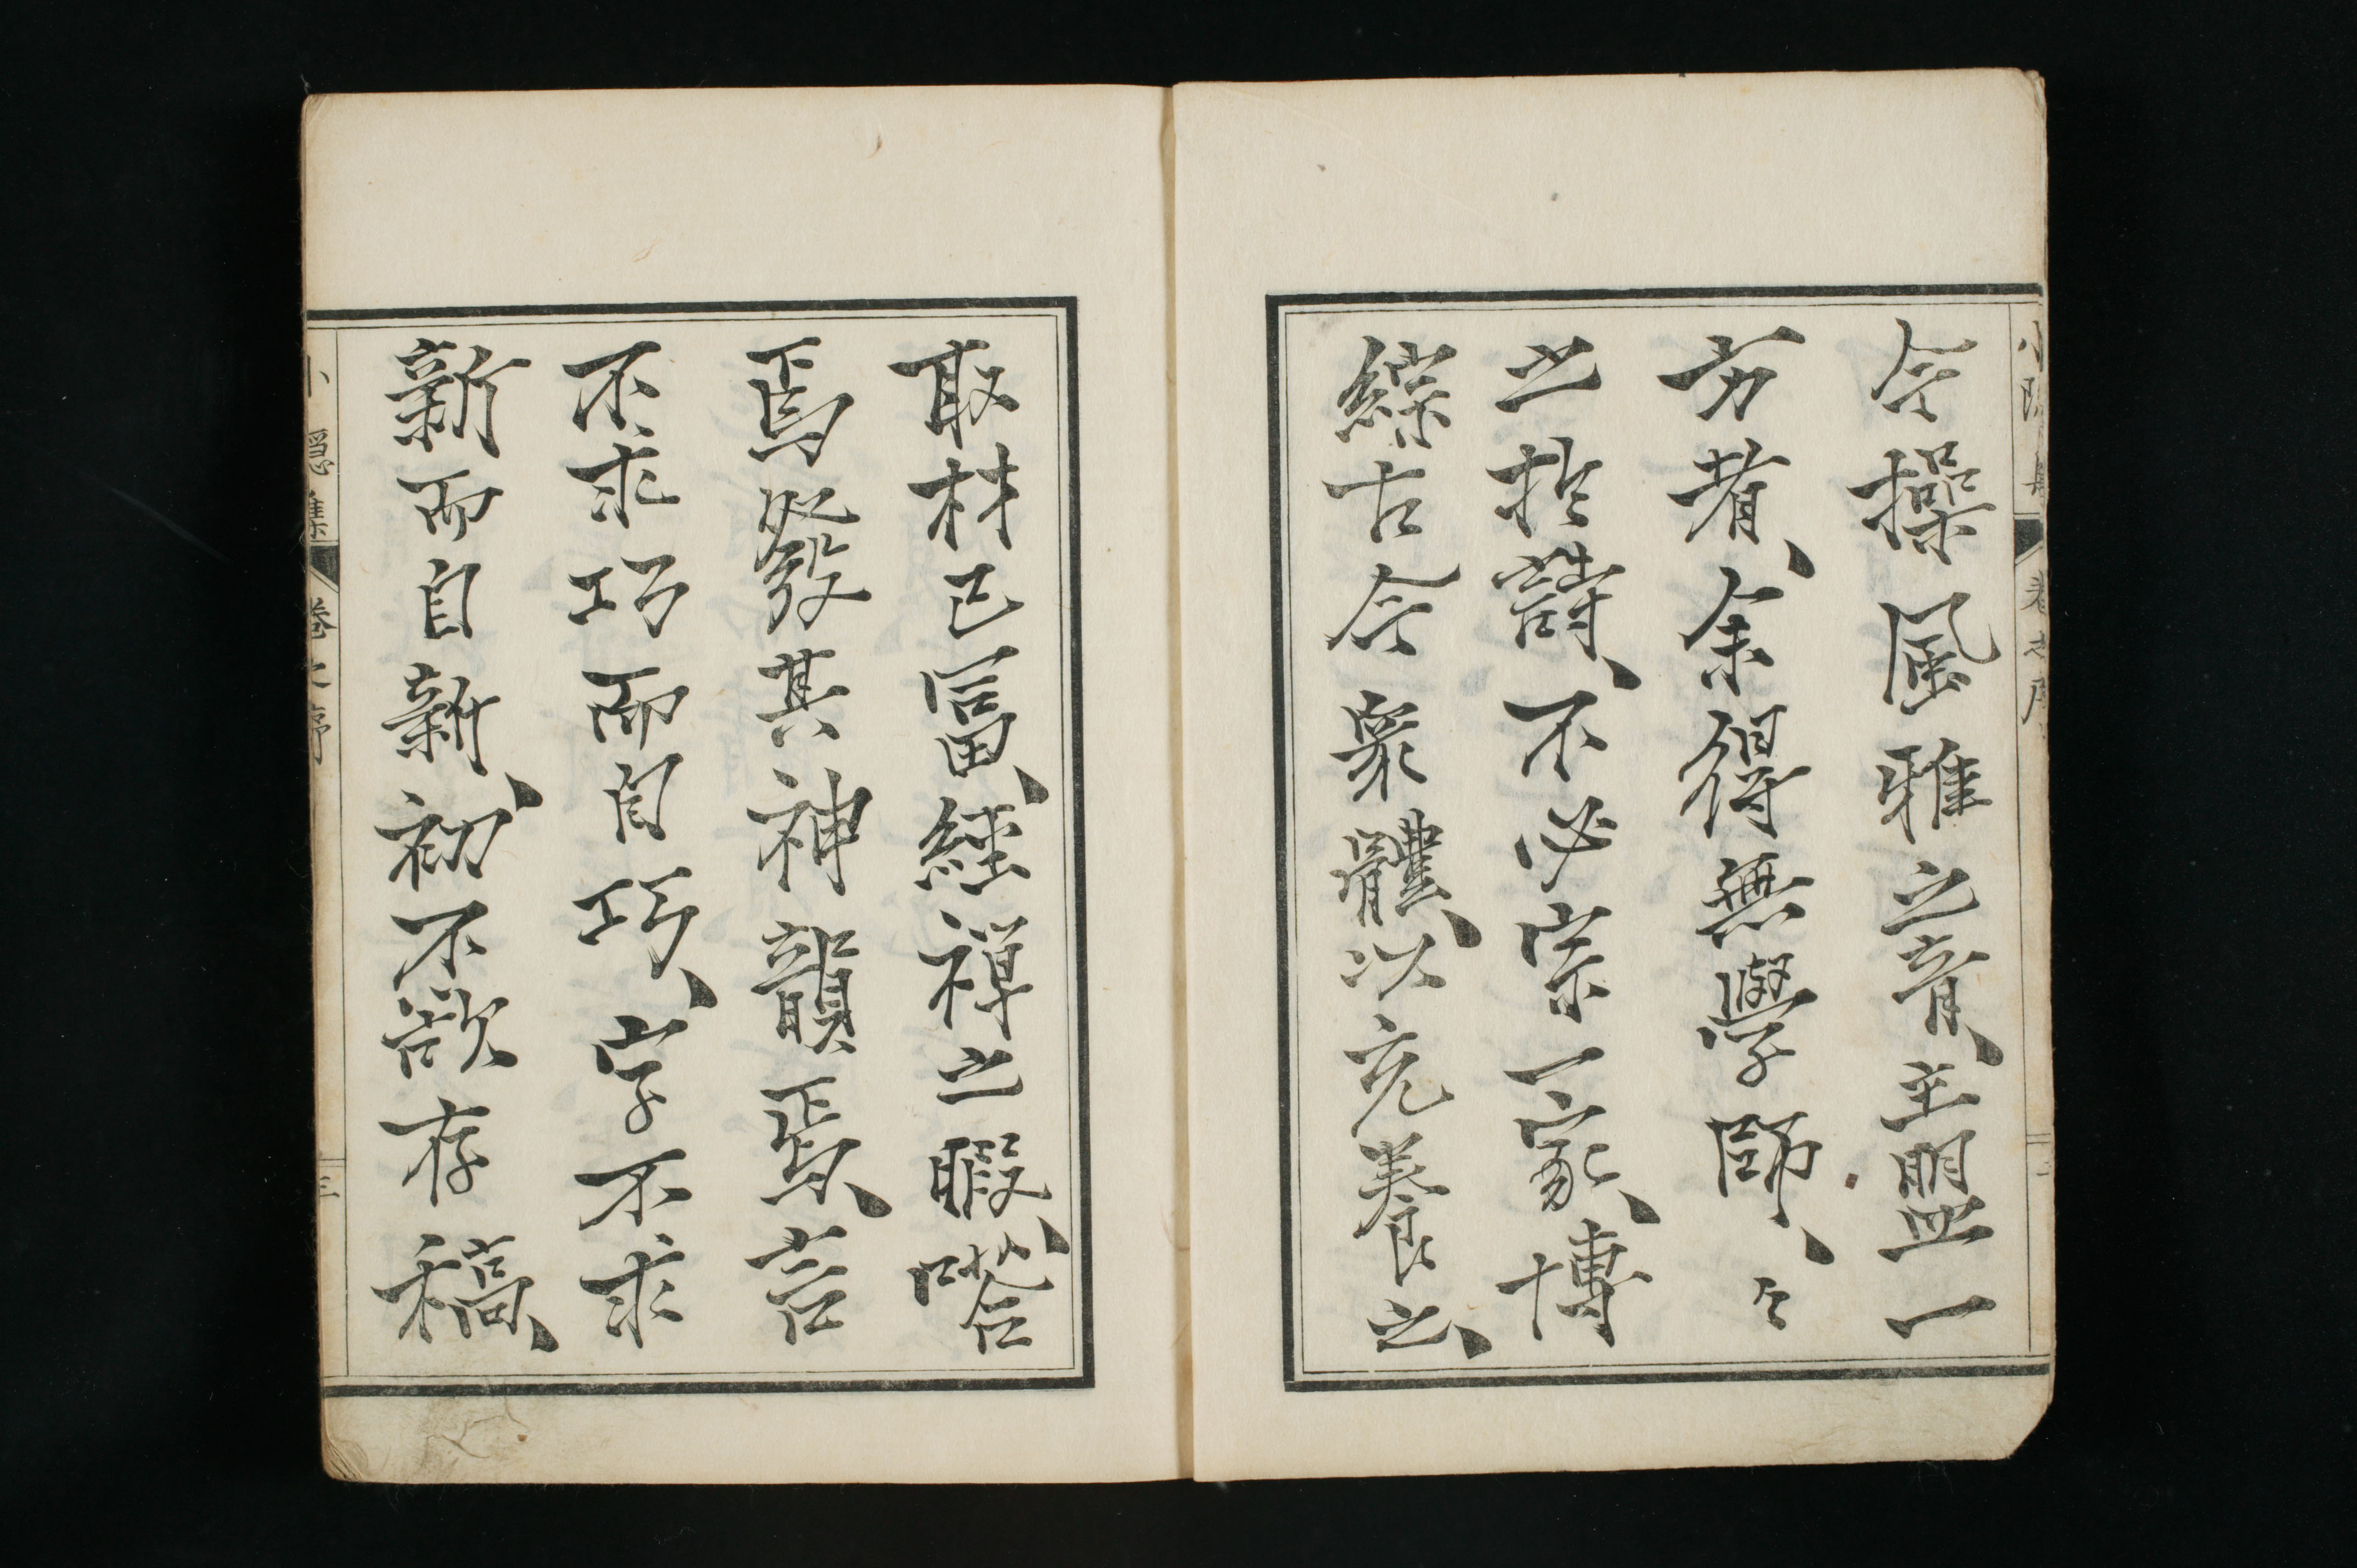 今操風雅之音、主盟一
方者、余得無學師、々
之於詩、不必宗一家、博
綜古今衆體、以充養之、
取材已冨、經禪之暇、喈
焉發其神韻焉、言
不求巧而自巧、字不求
新而自新、初不欲存稿、
小隱集
卷之序
三